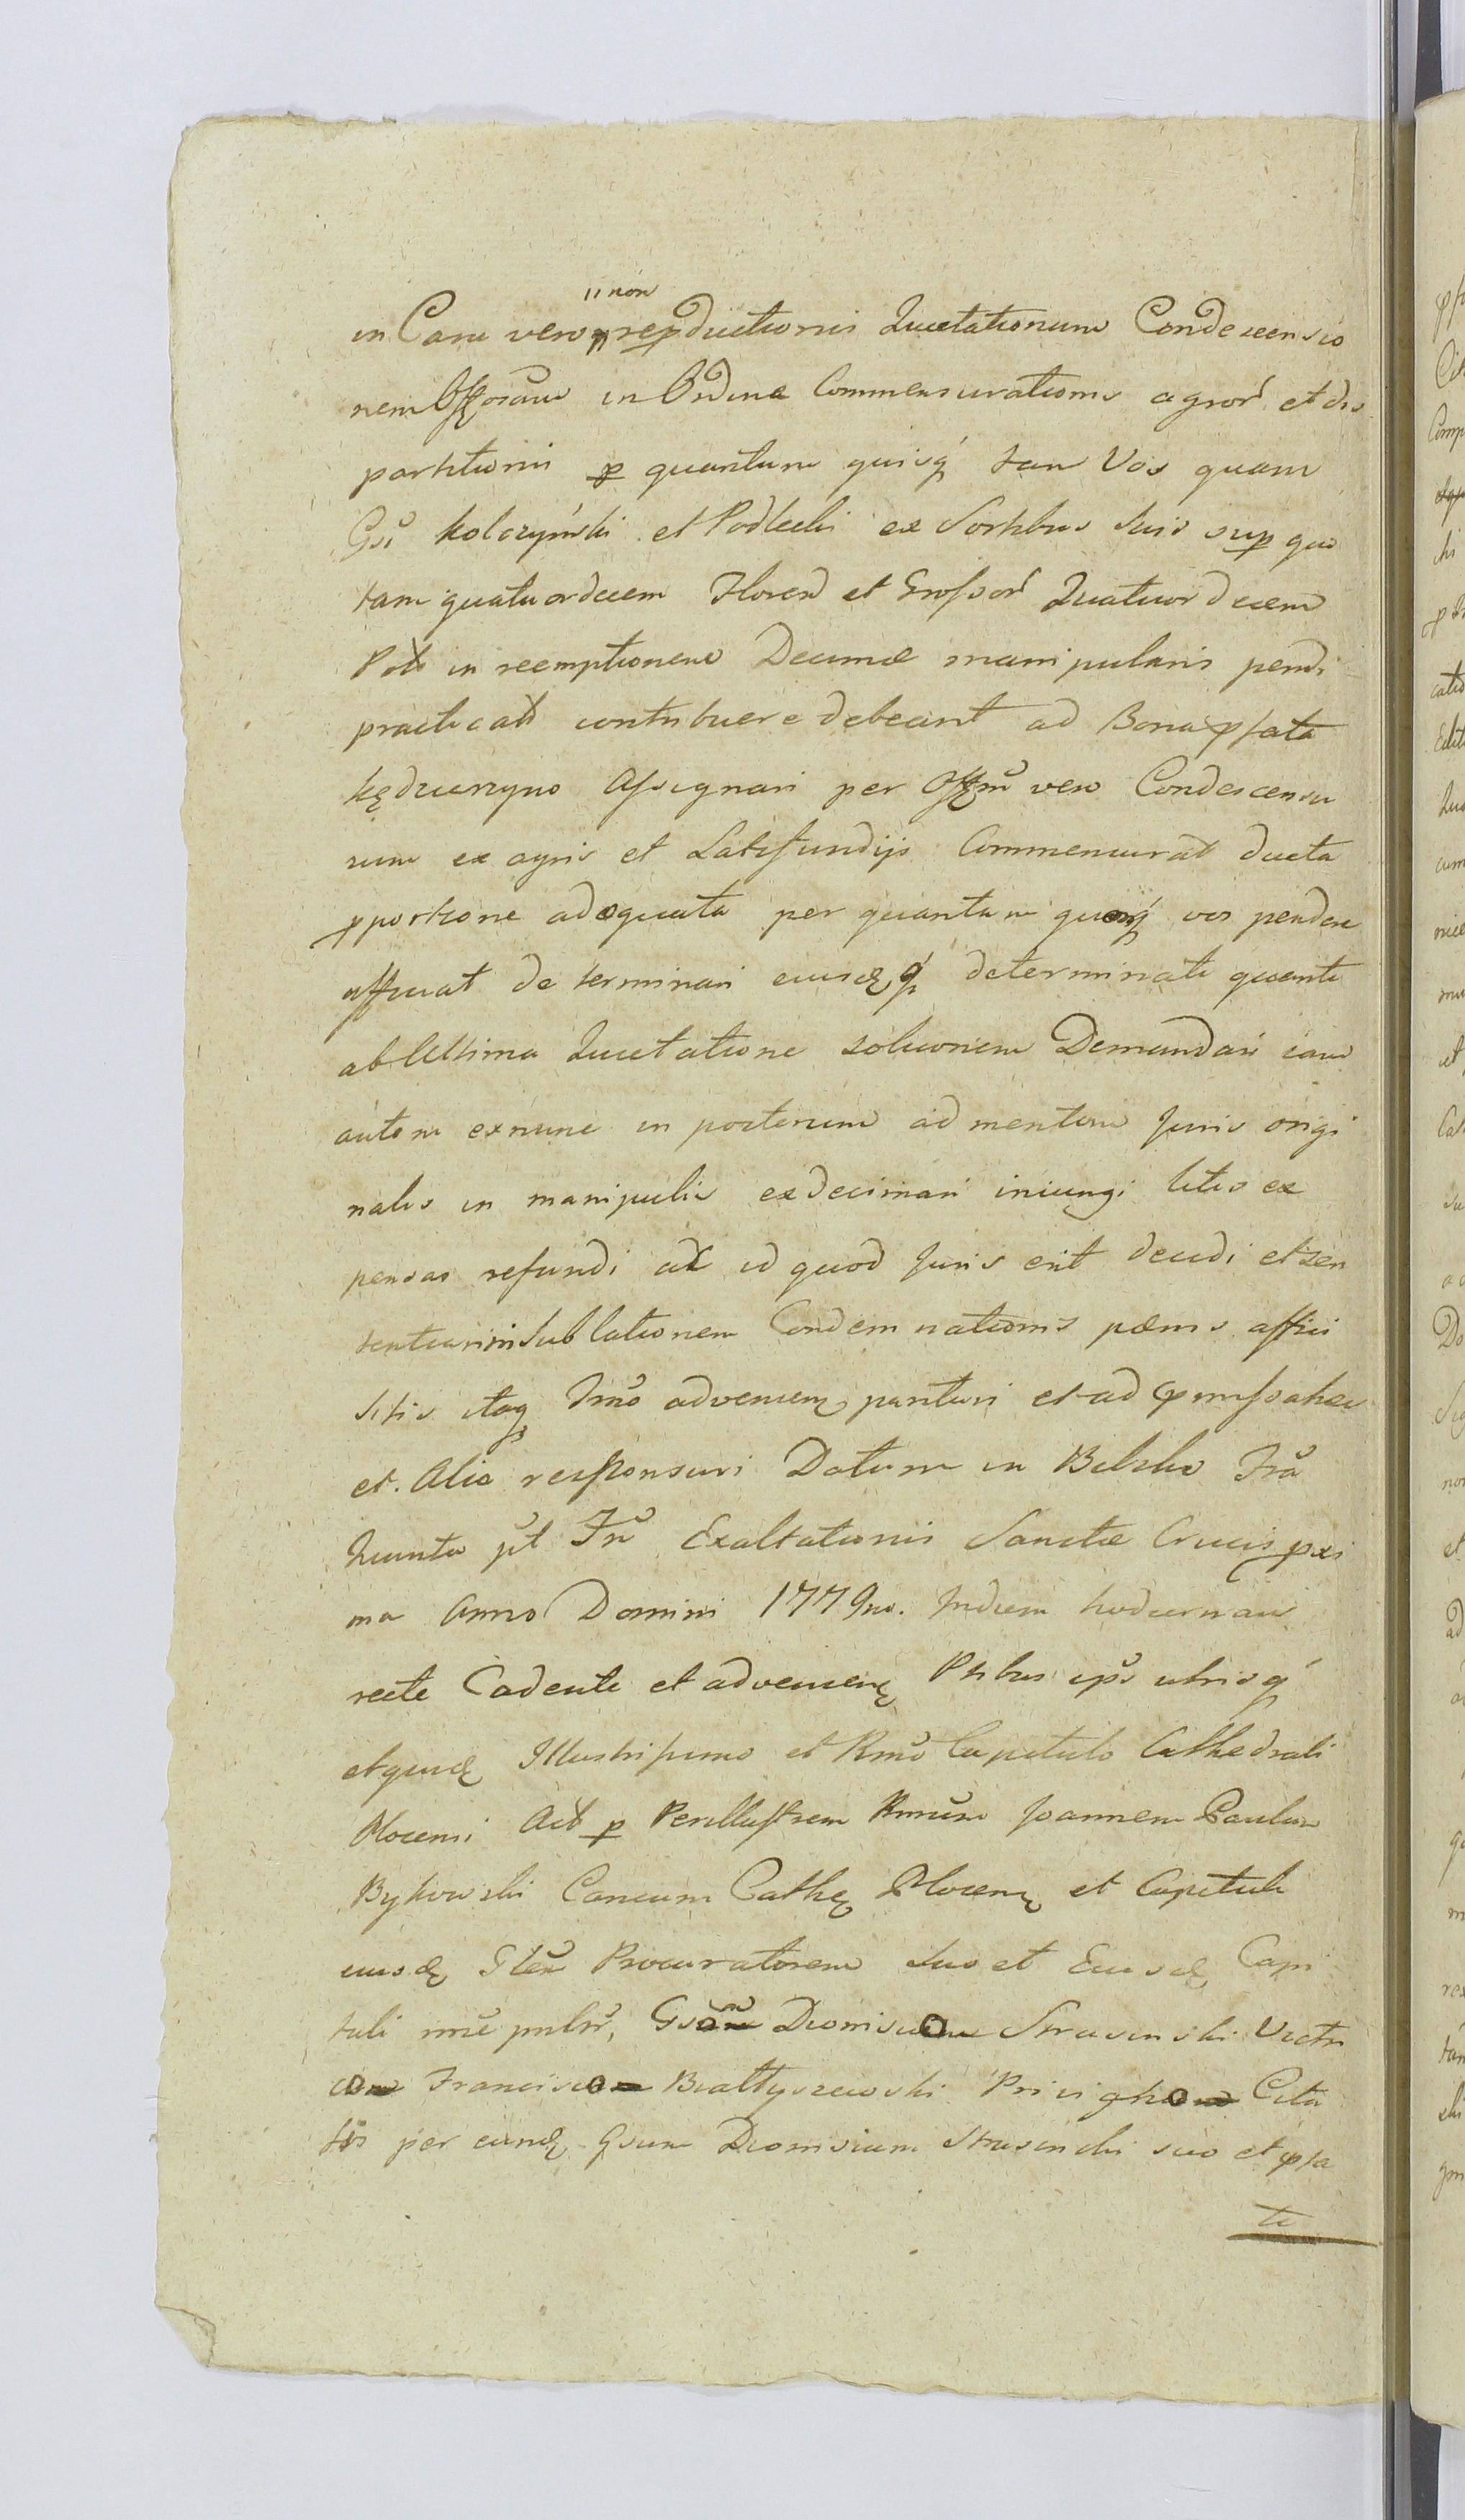 "non
in Casu vero " reproductionis Quietationum Condescensio
nem Officiosam in Ordine Commensurationis agror. et dis
partitionis p quantum quisq tam Vos quam
Gsi Kolczyński et Podlecki ex Sortibus suis sup quo
tam quatuordecem Floren et Grossor Quatuordecem
Polt in reemptionem Decimæ manipularis pendi
practicatt contribuere debeant ad Bona pfata
Kędzierzyno Assignari per Offm vero Condescensu
rum ex agris et Latifundijs Commensurat ducta
pportione adæquata per quantum quosq vos pendere
afficiat determinari eiusdq determinati quanti
ab Ultima Quietatione solucionem Demandari iam
autem exnunc in posterum ad mentem Juris origi
nalis in manipulis exdecimari iniungi litis ex
pensas refundi att id quod Juris erit decidi et sen
tentiari in Sublationem Condemnationis pænis affici
sitis itaq Imo advenien parituri et ad pmissa hæc
et Alia responsuri Datum in Bielsko Fra
Quinta pt Fu Exaltationis Sanctæ Crucis pxi
ma Anno Domini 1779no. Indiem hodiernam
recte Cadente et advenien Ptibus ips utrisq
et quid Illustrissimo et Rmo Capitulo Cathedrali
Plocensi Act p Perillustrem Rmum Joannem Paulum
Bykowski Canicum Cathe Plocen et Capituli
eiusd Glem Procuratorem suo et Eiusd Capi
tuli nne pnbr, Gso Dionisio Strusinski Victri
co Francisco Białłyszewski Privigno Cita
tis per eund Gsum Dionisium Strusinski suo et pfa
ti